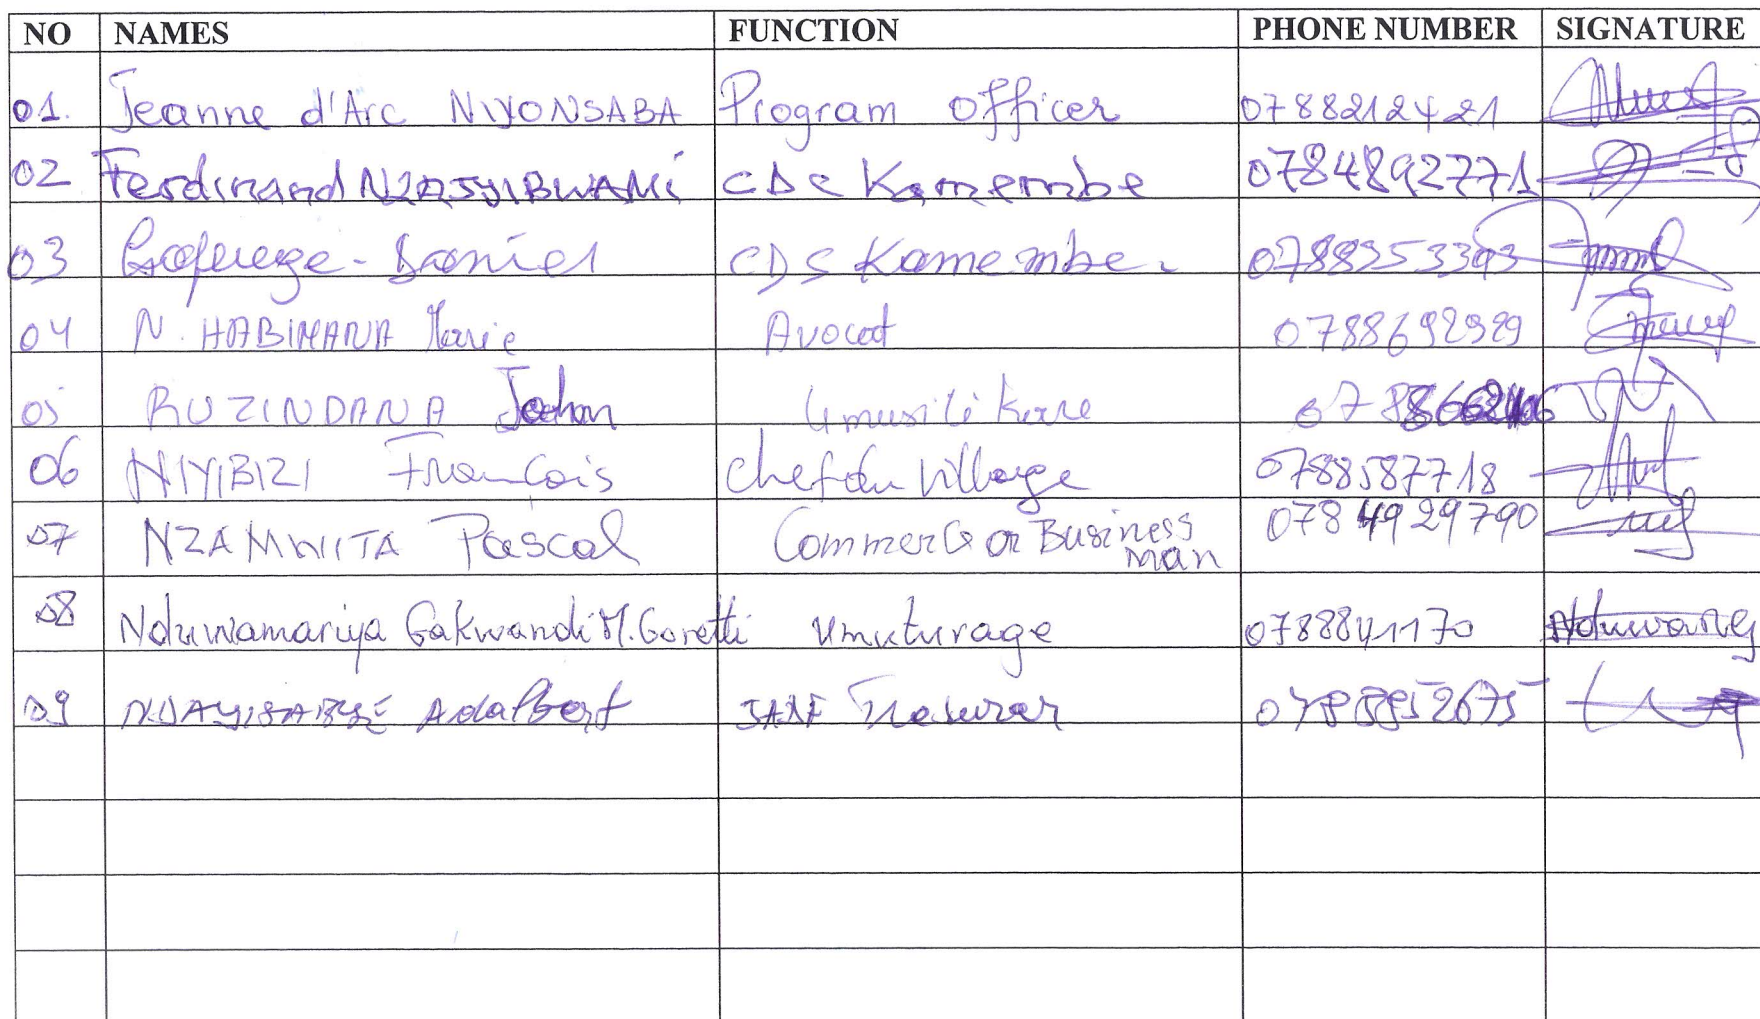 NO NAMES FUNCTION PHONE NUMBER SIGNATURE
01. Jeanne d'Arc NIYONSABA Program Officer 0788212421
02 Ferdinand NZASYIBWAMI CDC Kamembe 0784892771
03 Daniel CDS Kamembe. 0788353393
04 N. HABIMANA Marie Avocat 0788692929
05 RUZINDANA Umusilikare
06 NIYIBIZI François Chef du Village 0788587718
07 NZAMWITA Pascal Commerce or Business man 0784929790
08 Nduwamariya Gakwandi M. Goretti Umuturage 0788841170
09 Adalbert